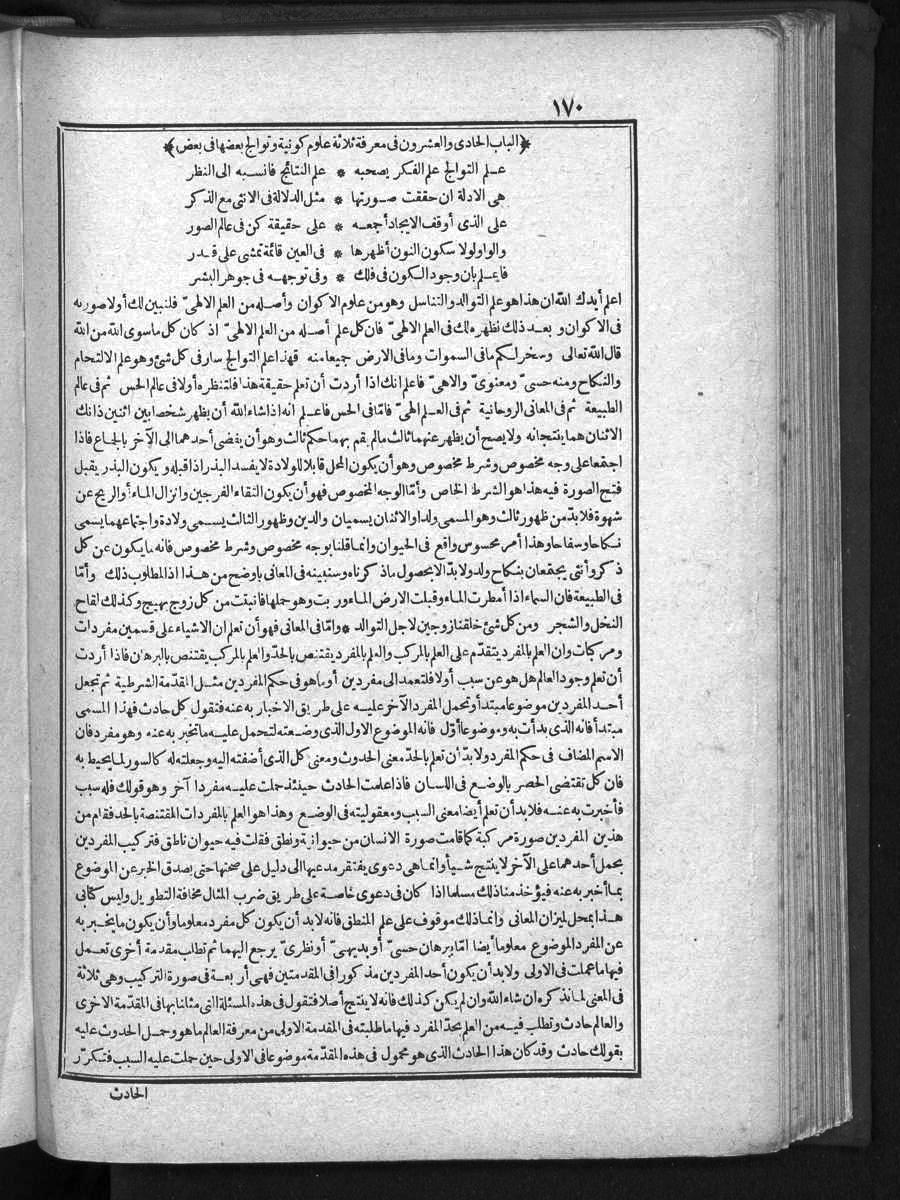 ١٧٠
﴿الباب الحادى والعشرون فى معرفة ثلاثة علوم كونية وتوالج بعضها فى بعض﴾
علم التوالج علم الفكر يصحبه * علم النتائج فانسبه الى النظر
هى الادلة ان حققت صورتها * مثل الدلالة فى الانثى مع الذكر
على الذى أوقف الايجاد أجمعه * على حقيقة كن فى عالم الصور
والواو لولا سكون النون أظهرها * فى العين قائمة تمشى على قدر
فاعلم بان وجود الكون فى فلك * وفى توجهه فى جوهر البشر
اعلم أيدك الله ان هذا هو علم التوالد والتناسل وهو من علوم الاكوان وأصله من العلم الالهىّ فلنبين لك أولا صورته
فى الاكوان وبعد ذلك نظهره لك فى العلم الالهىّ فان كل علم أصله من العلم الالهىّ اذ كان كل ما سوى الله من الله
قال الله تعالى وسخر لكم ما فى السموات وما فى الارض جميعا منه فهذا علم التوالج سار فى كل شئ وهو علم الالتحام
والنكاح ومنه حسىّ ومعنوىّ والاهىّ فاعلم انك اذا أردت أن تعلم حقيقة هذا فلتنظره أولا فى عالم الحس ثم فى عالم
الطبيعة ثم فى المعانى الروحانية ثم فى العلم الالهىّ فامّا فى الحس فاعلم انه اذا شاء الله أن يظهر شخصا بين اثنين ذانك
الاثنان هما ينتجانه ولا يصح أن يظهر عنهما ثالث مالم يقم بهما حكم ثالث وهو أن يفضى أحدهما الى الآخر بالجماع فاذا
اجتمعا على وجه مخصوص وشرط مخصوص وهو أن يكون المحل قابلا للولادة لا يفسد البذر اذا قبله ويكون البذر يقبل
فتح الصورة فيه هذا هو الشرط الخاص وأمّا الوجه المخصوص فهو أن يكون التقاء الفرجين وانزال الماء أو الريح عن
شهوة فلابدّ من ظهور ثالث وهو المسمى ولدا والاثنان يسميان والدين وظهور الثالث يسمى ولادة واجتماعهما يسمى
نكاحا وسفاحا وهذا أمر محسوس واقع فى الحيوان وانما قلنا بوجه مخصوص وشرط مخصوص فانه ما يكون عن كل
ذكر وأنثى يجتمعان بنكاح ولد ولابدّ الا بحصول ماذكرناه وسنبينه فى المعانى باوضح من هذا اذ المطلوب ذلك وأمّا
فى الطبيعة فان السماء اذا أمطرت الماء وقبلت الارض الماء وربت وهو حملها فانبتت من كل زوج بهيج وكذلك لقاح
النخل والشجر ومن كل شئ خلقنا زوجين لاجل التوالد * وامّا فى المعانى فهو أن تعلم ان الاشياء على قسمين مفردات
ومركبات وان العلم بالمفرد يتقدّم على العلم بالمركب والعلم بالمفرد يقتنص بالحدّ والعلم بالمركب يقتنص بالبرهان فاذا أردت
أن تعلم وجود العالم هل هو عن سبب أولا فلتعمد الى مفردين أو ما هو فى حكم المفردين مثل المقدّمة الشرطية ثم تجعل
أحد المفردين موضوعا مبتدأ وتحمل المفرد الآخر عليه على طريق الاخبار به عنه فتقول كل حادث فهذا المسمى
مبتدأ فانه الذى بدأت به وموضوعا أوّل فانه الموضوع الاول الذى وضعته لتحمل عليه ما تخبر به عنه وهو مفرد فان
الاسم المضاف فى حكم المفرد ولابدّ أن تعلم بالحدّ معنى الحدوث ومعنى كل الذى أضفته اليه وجعلته له كالسور لما يحيط به
فان كل تقتضى الحصر بالوضع فى اللسان فاذا علمت الحادث حينئذ حملت عليه مفردا آخر وهو قولك فله سبب
فأخبرت به عنه فلابد أن تعلم أيضا معنى السبب ومعقوليته فى الوضع وهذا هو العلم بالمفردات المقتنصة بالحد فقام من
هذين المفردين صورة مركبة كما قامت صورة الانسان من حيوانية ونطق فقلت فيه حيوان ناطق فتركيب المفردين
بحمل أحدهما على الآخر لا ينتج شيأ وانما هى دعوى يفتقر مدعيها الى دليل على صحتها حتى يصدق الخبر عن الموضوع
بما أخبر به عنه فيؤخذ منا ذلك مسلما اذا كان فى دعوى خاصة على طريق ضرب المثال مخافة التطويل وليس كتابى
هذا بمحل لميزان المعانى وانما ذلك موقوف على علم المنطق فانه لابد أن يكون كل مفرد معلوما وأن يكون ما يخبر به
عن المفرد الموضوع معلوما أيضا امّا ببرهان حسىّ أو بديهىّ أو نظرىّ يرجع اليهما ثم تطلب مقدمة أخرى تعمل
فيها ما عملت فى الاولى ولابد أن يكون أحد المفردين مذكورا فى المقدمتين فهى أربعة فى صورة التركيب وهى ثلاثة
فى المعنى لما نذكره ان شاء الله وان لم يكن كذلك فانه لا ينتج أصلا فتقول فى هذه المسئلة التى مثلنا بها فى المقدّمة الاخرى
والعالم حادث وتطلب فيه من العلم بحدّ المفرد فيها ما طلبته فى المقدمة الاولى من معرفة العالم ما هو وحمل الحدوث عليه
بقولك حادث وقد كان هذا الحادث الذى هو محمول فى هذه المقدّمة موضوعا فى الاولى حين حملت عليه السبب فتكرّر
الحادث